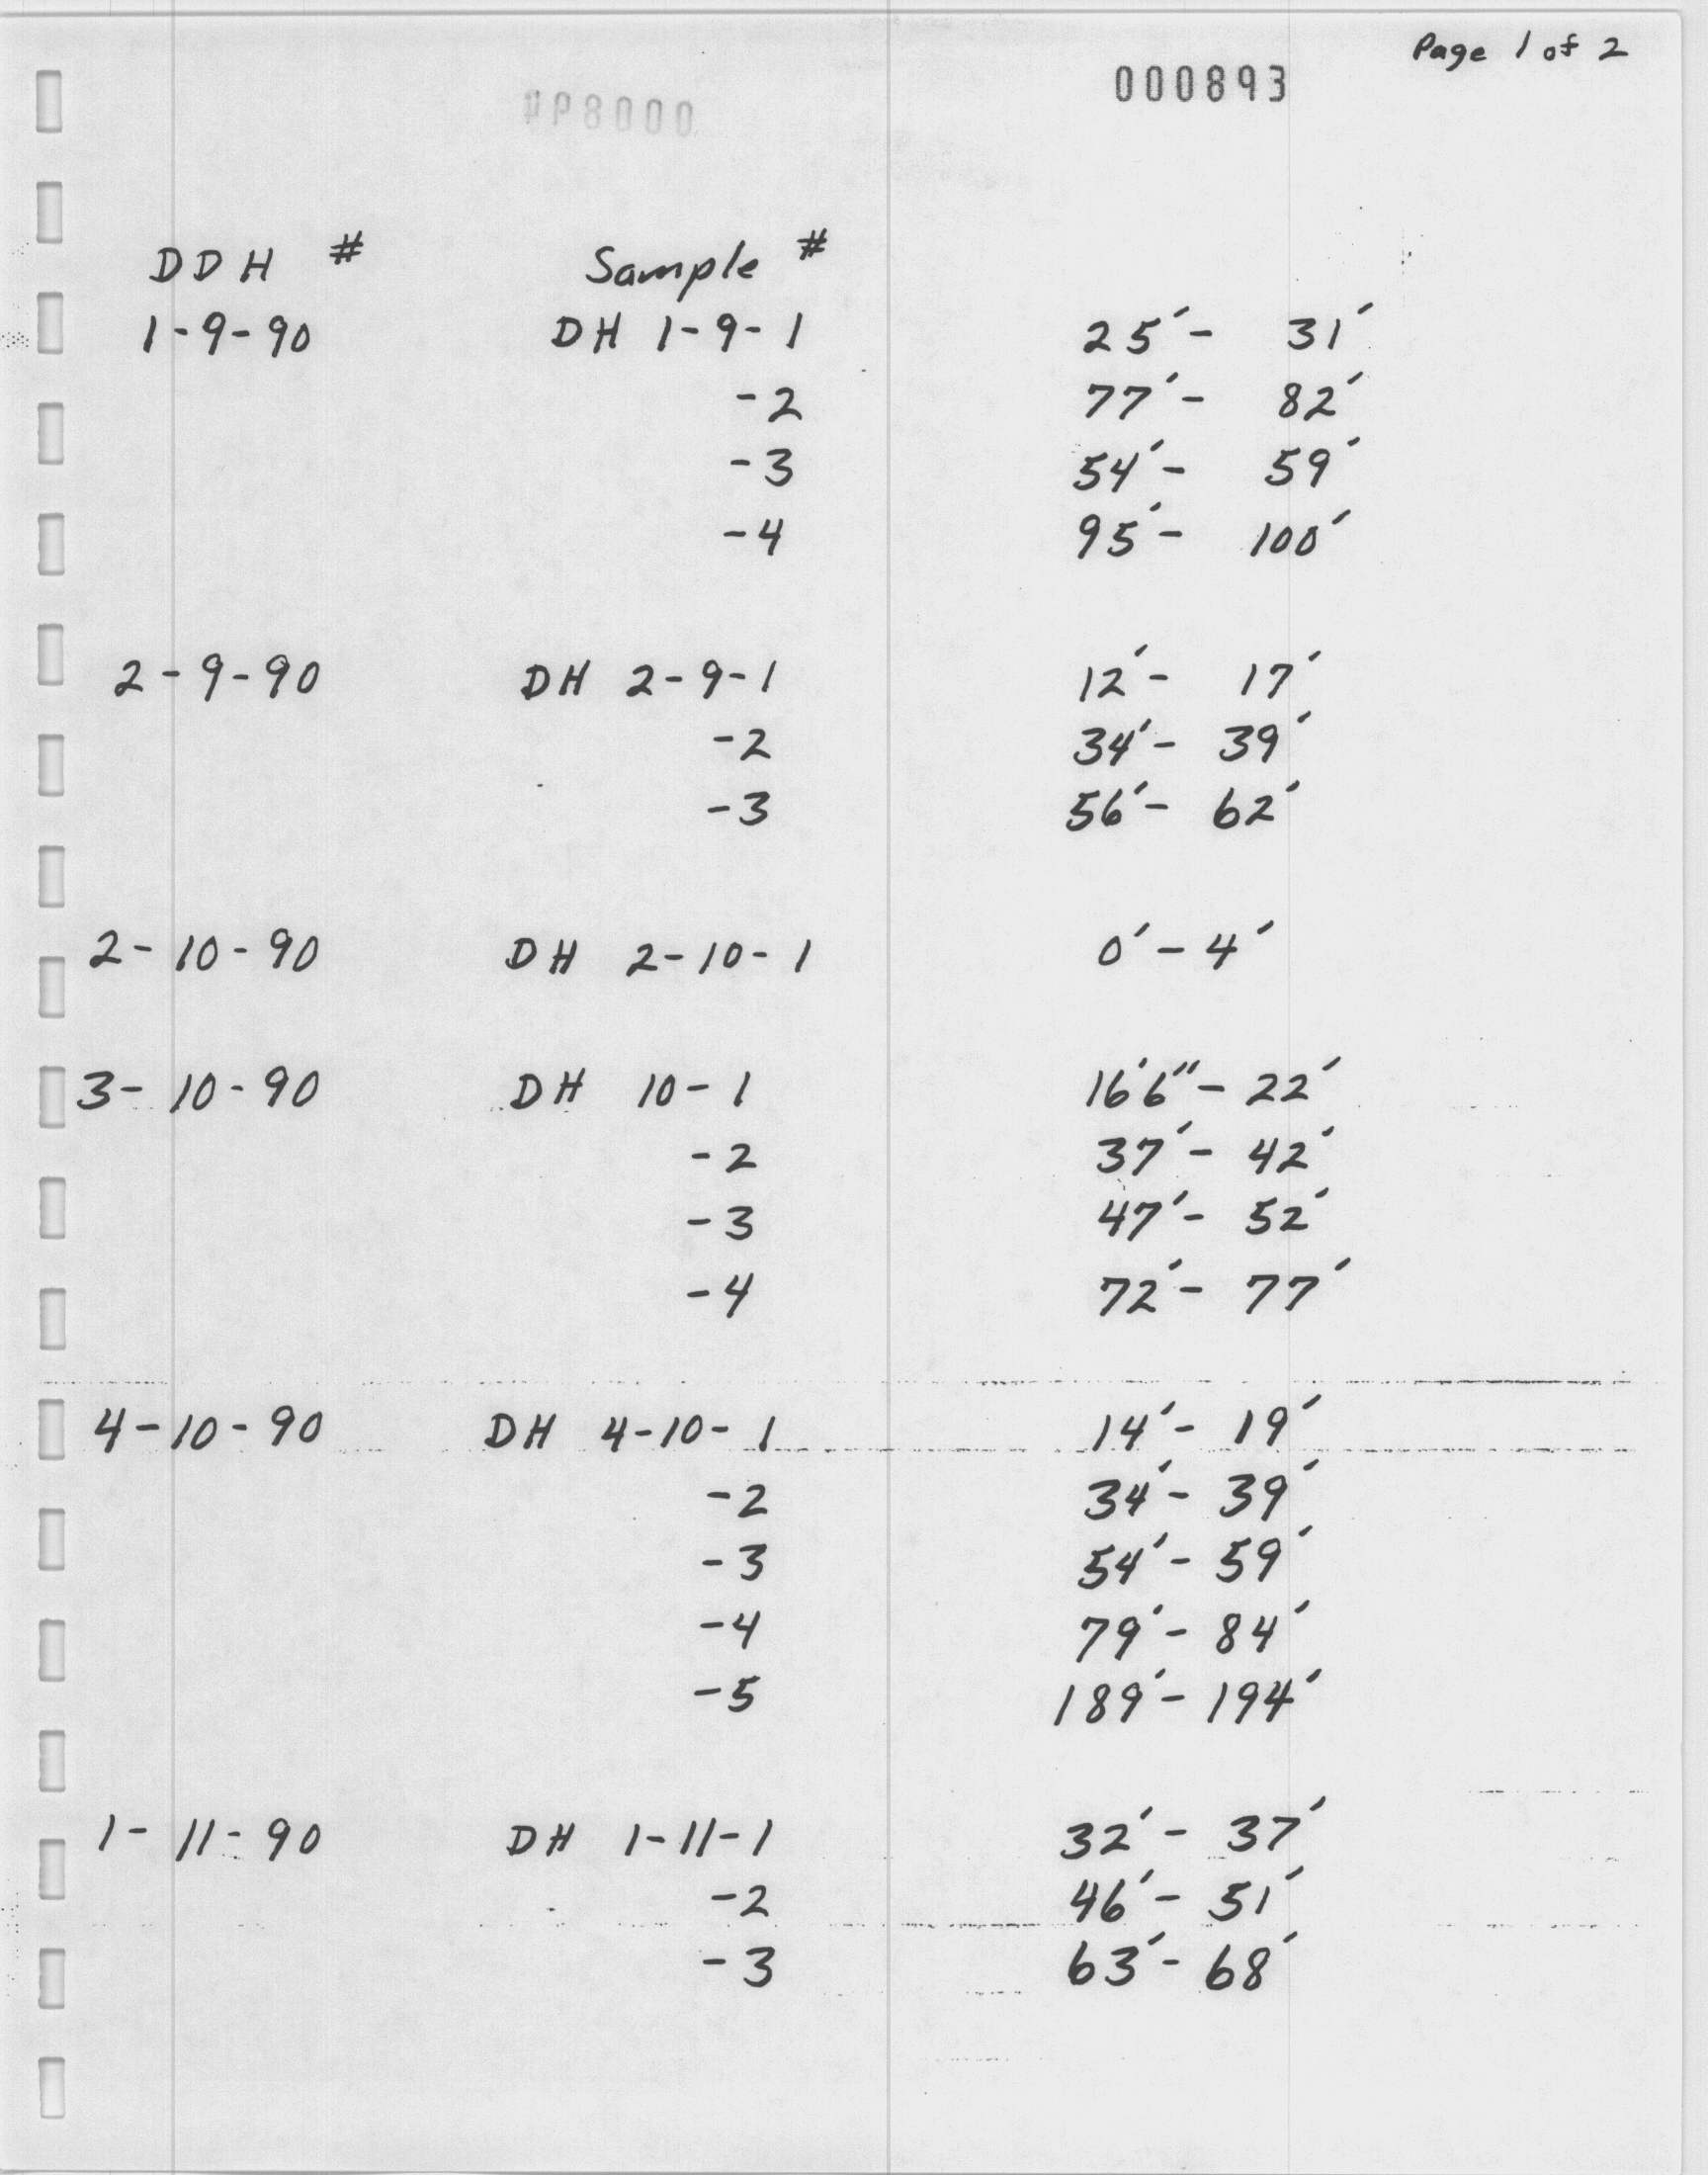 Page 1 of 2
000893
DDH # Sample #
1-9-90 DH 1-9-1 25'- 31'
-2 77'- 82'
-3 54'- 59'
-4 95'- 100'
2-9-90 DH 2-9-1 12'- 17'
-2 34'- 39'
-3 56'- 62'
2-10-90 DH 2-10-1 0'-4'
3-10-90 DH 10-1 16'6"-22'
-2 37'- 42'
-3 47'- 52'
-4 72'- 77'
4-10-90 DH 4-10-1 14'- 19'
-2 34'- 39'
-3 54'- 59'
-4 79'- 84'
-5 189'- 194'
1-11-90 DH 1-11-1 32'- 37'
-2 46'- 51'
-3 63'- 68'